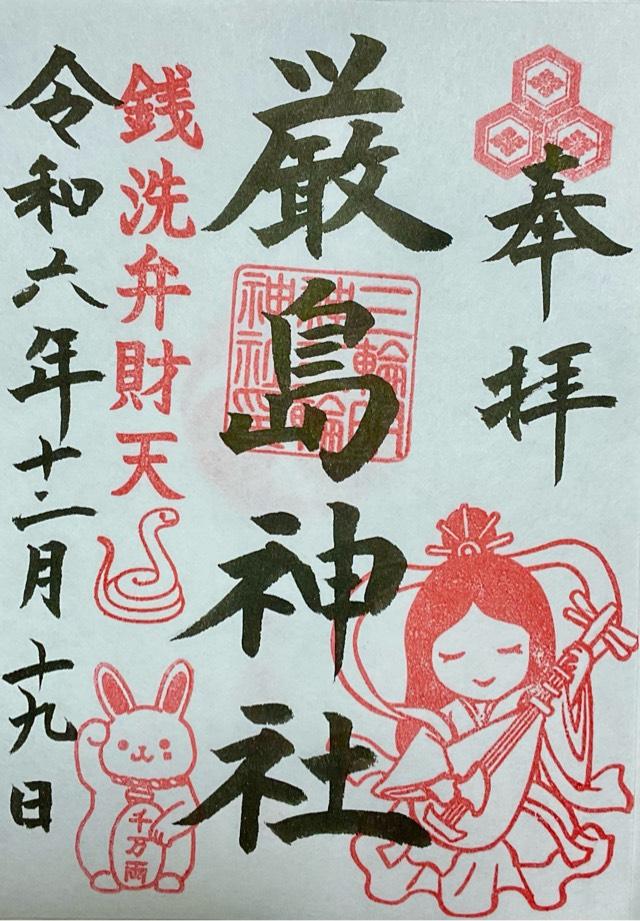 奉拝
厳島神社
銭洗弁財天
千万両
令和六年十二月十九日